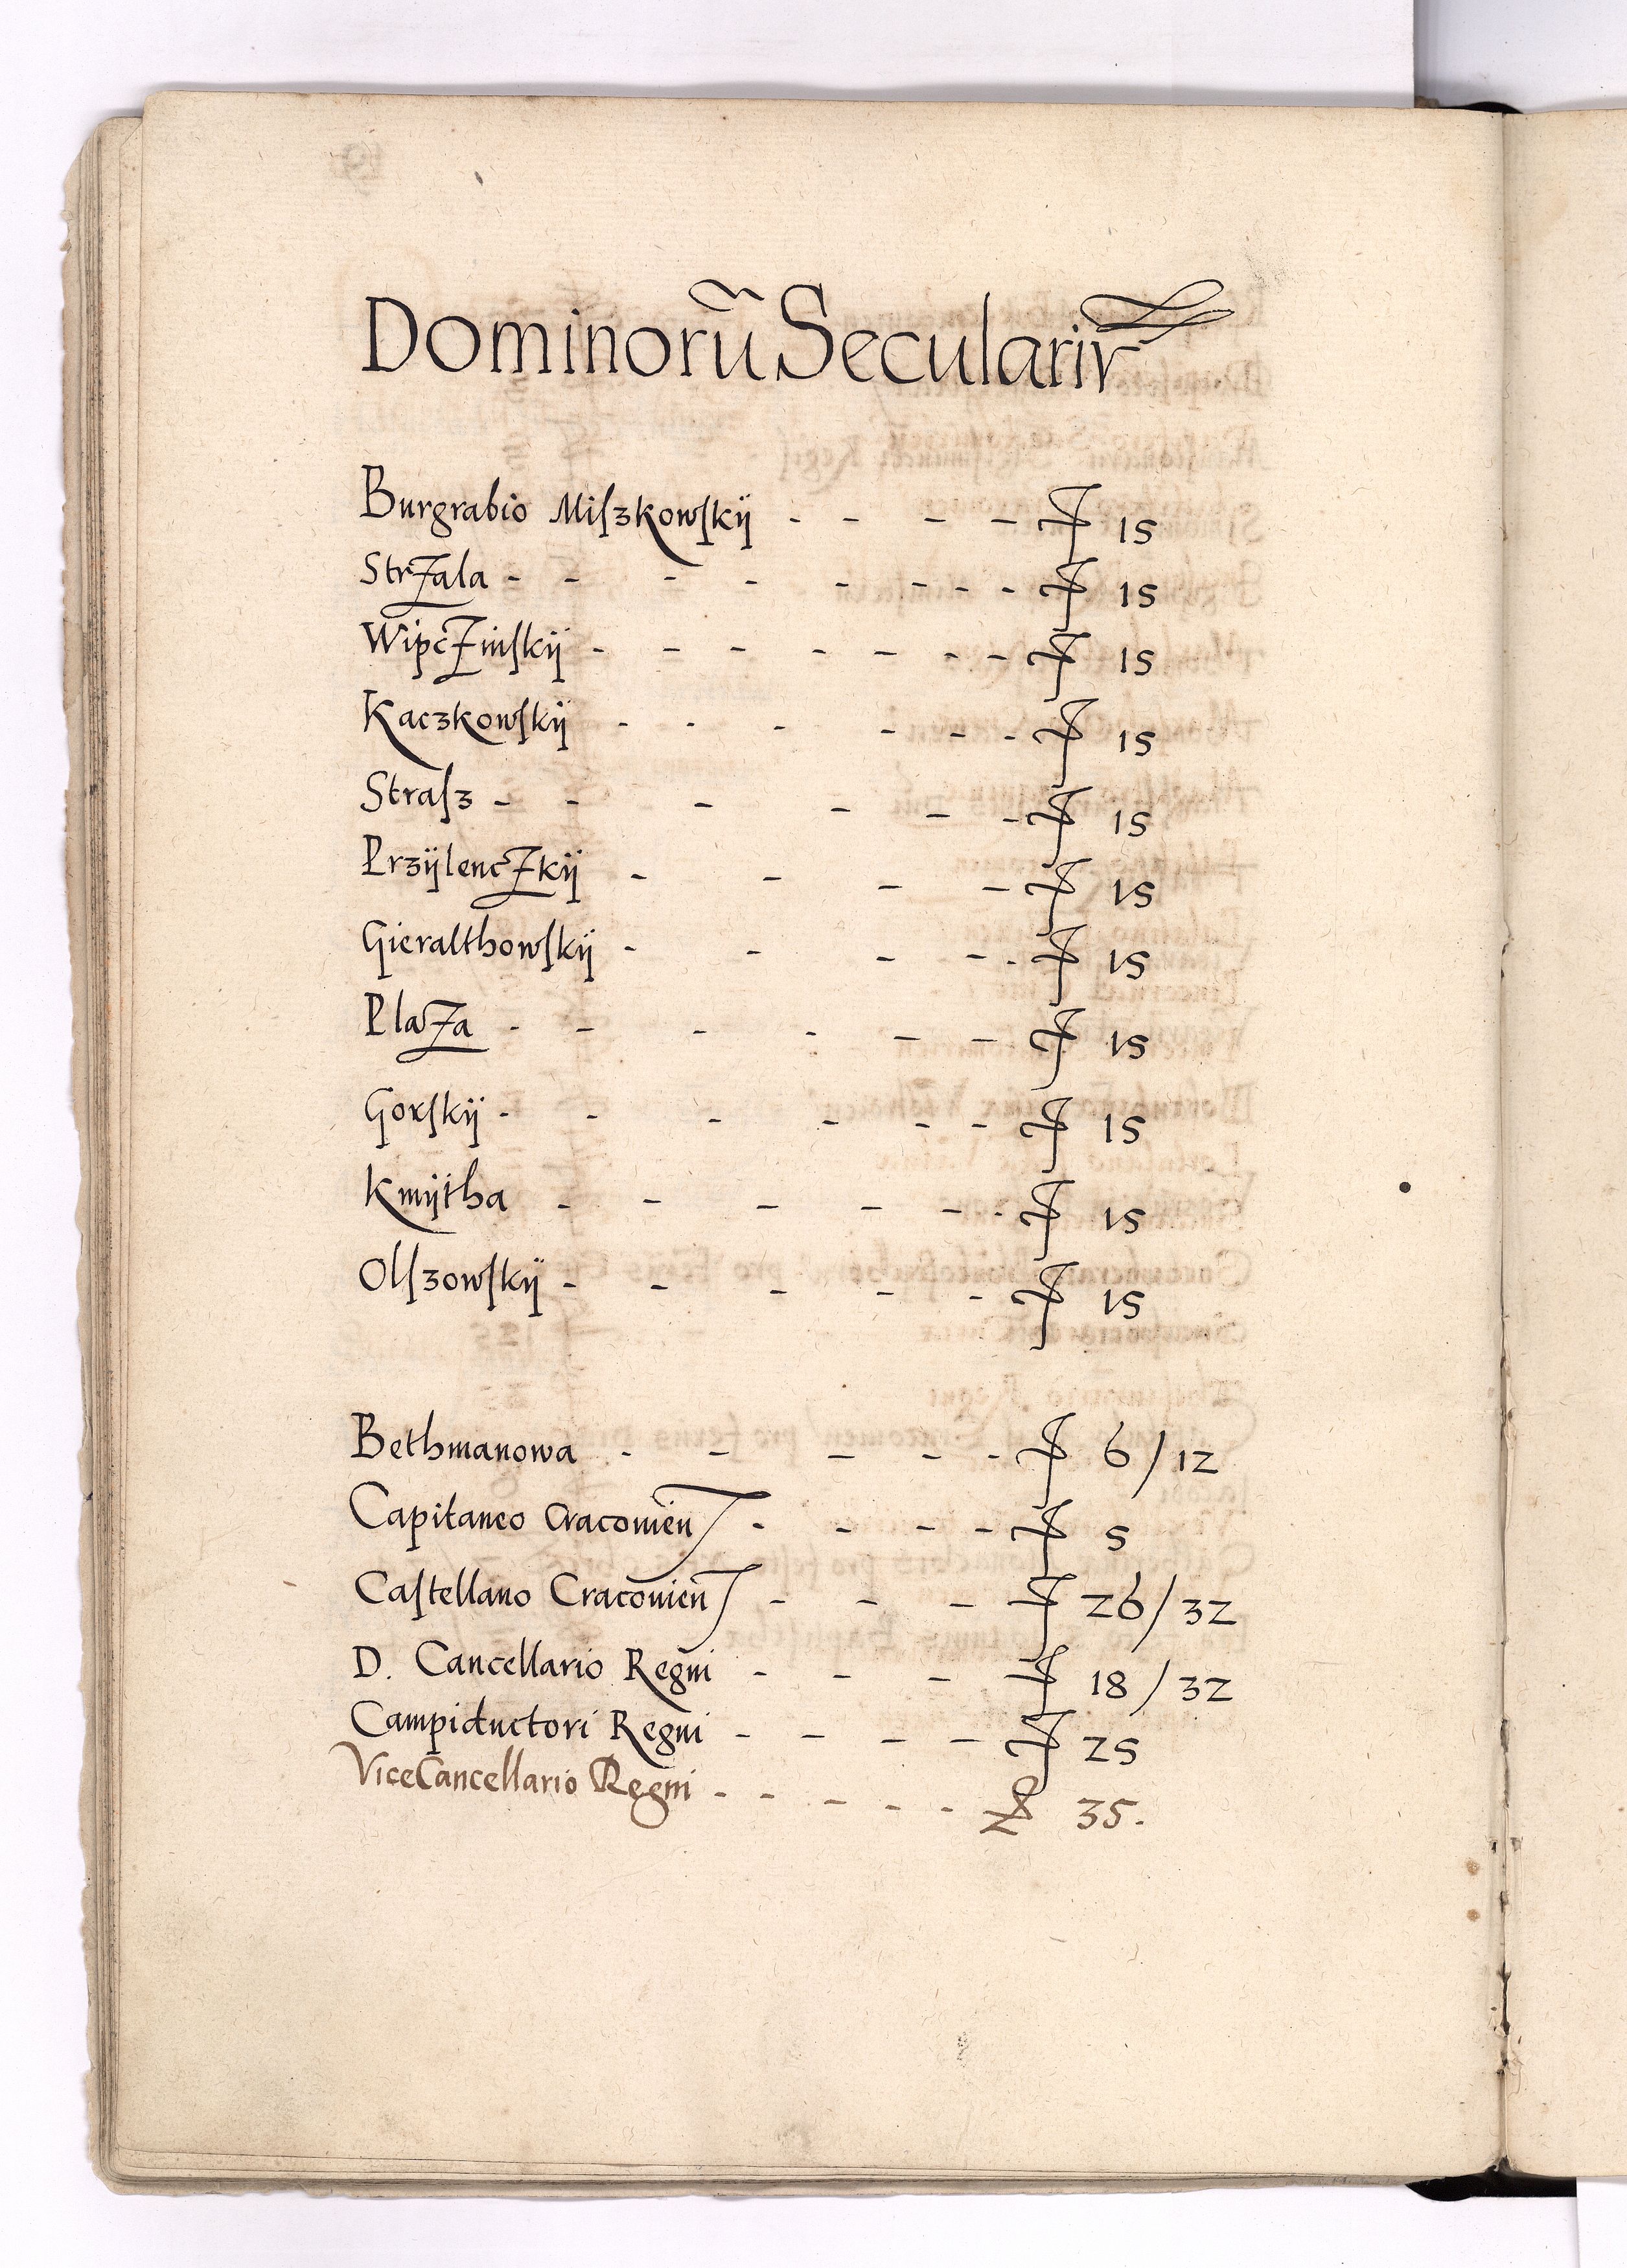 Dominorũ Seculariũ
Burgrabio Miſzkowſkÿ - - - - ƒ 15
Strzala - - - - - - - - ƒ 15
Wipczinſkÿ - - - - - - - ƒ 15
Kaczkowſkÿ - - - - - - ƒ 15
Straſz - - - - - - ƒ 15
Przÿlenczkÿ - - - - ƒ 15
Gieralthowſkÿ - - - - - ƒ 15
Plaza - - - - - - ƒ 15
Gorſkÿ - - - - - - ƒ 15
Kmÿtha - - - - - - ƒ 15
Olſzowſkÿ - - - - - ƒ 15
Bethmanowa - - - - - ƒ 6/12
Capitaneo Cracovień - - - - ƒ 5
Caſtellano Cracovień - - - ƒ 26/32
D. Cancellario Regni - - - ƒ 18/32
Campiductori Regni - - - - ƒ 25
ViceCancellario Regni - - - - - ƒ 35.